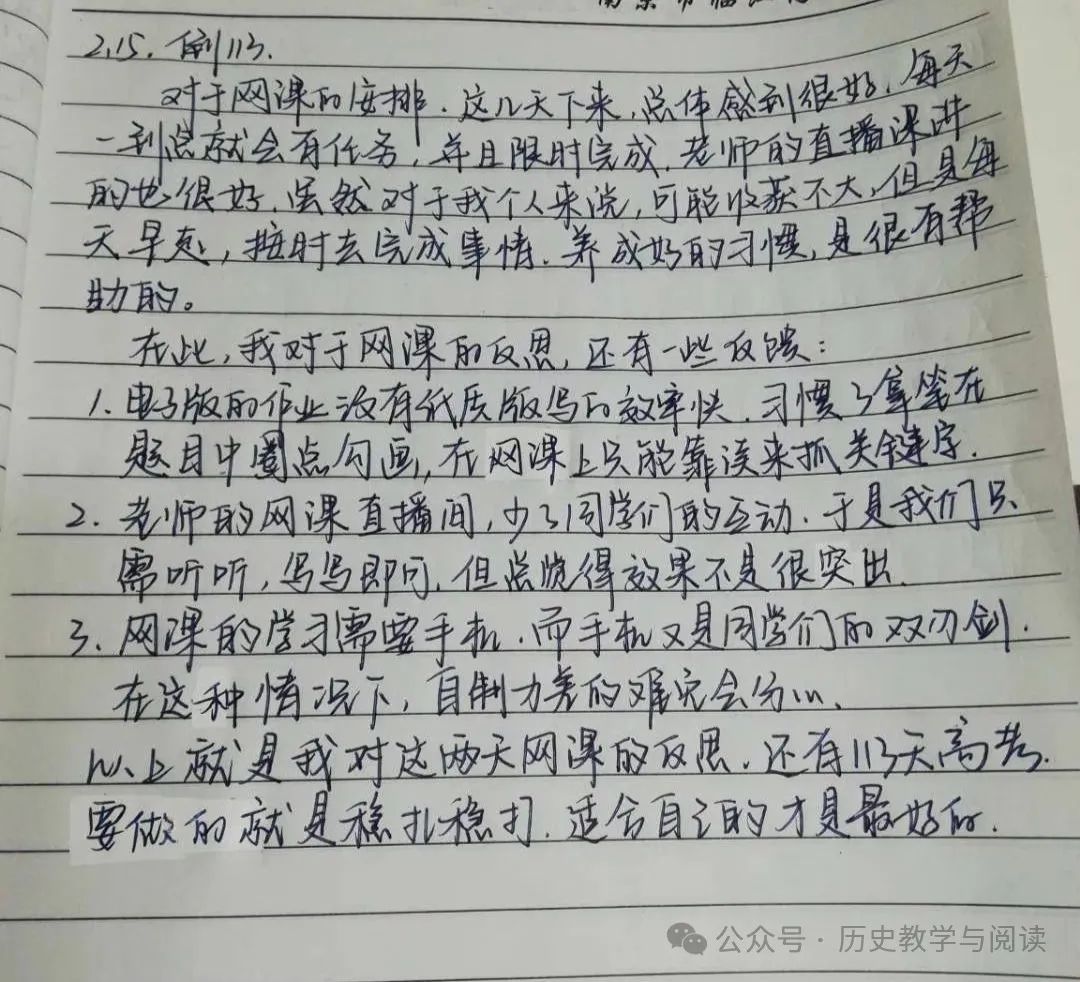 2.15. 倒113.
对于网课的安排.这几天下来,总体感到很好.每天
一到点就会有任务,并且限时完成.老师的直播课讲
的也很好.虽然对于我个人来说,可能收获不大,但是每
天早起,按时去完成事情.养成好的习惯,是很有帮
助的。
在此,我对于网课的反思,还有一些反馈:
1.电子版的作业没有纸质版写的效率快.习惯了拿笔在
题目中圈点勾画,在网课上只能靠读来抓关键字.
2.老师的网课直播间,少了同学们的互动.于是我们只
需听听,写写即可,但总觉得效果不是很突出.
3.网课的学习需要手机.而手机又是同学们的双刃剑.
在这种情况下,自制力差的难免会分心.
以上就是我对这两天网课的反思.还有113天高考.
要做的就是稳扎稳打.适合自己的才是最好的.
公众号·历史教学与阅读